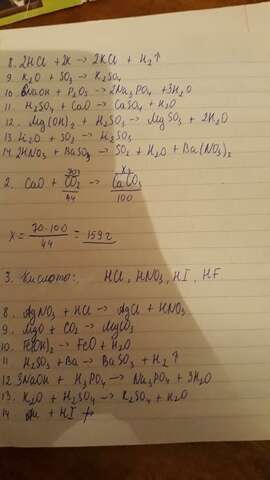 8. 2HCl + 2K → 2KCl + H₂↑
9. K₂O + SO₃ → K₂SO₄
10. 6NaOH + P₂O₅ → 2Na₃PO₄ + 3H₂O
11. H₂SO₄ + CaO → CaSO₄ + H₂O
12. Mg(OH)₂ + H₂SO₃ → MgSO₃ + 2H₂O
13. H₂O + SO₂ → H₂SO₃
14. 2HNO₃ + BaSO₃ → SO₂ + H₂O + Ba(NO₃)₂
70г Xг
2. CaO + CO₂ → CaCO₃
44 100
X = 70·100 / 44 = 159 г
3. Кислоты: HCl, HNO₃, HI, HF
8. AgNO₃ + HCl → AgCl + HNO₃
9. MgO + CO₂ → MgCO₃
10. Fe(OH)₂ → FeO + H₂O
11 H₂SO₃ + Ba → BaSO₃ + H₂↑
12 3NaOH + H₃PO₄ → Na₃PO₄ + 3H₂O
13. K₂O + H₂SO₄ → K₂SO₄ + H₂O
14 + HI